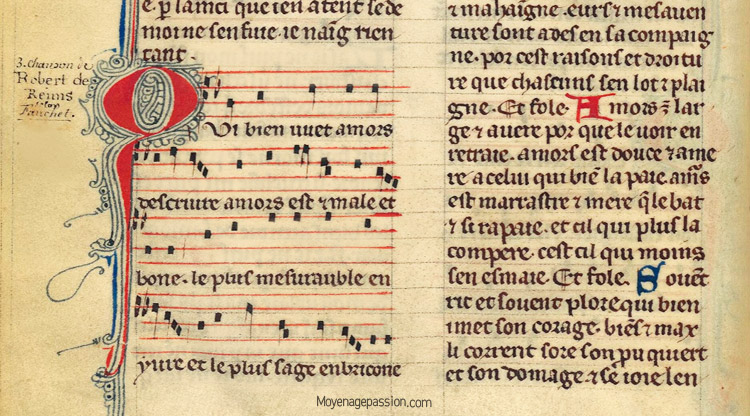 e ꝑ lainci que ien atent se de
moi ne sen fuie. ie naīg rien
tant.
3. chanson de
Robert de
Reims
Fauchet.
Qvi bien uuet amors
descriure amors est ⁊ male et
bone. le plus mesurauble en
yure et le plus sage enbricone
⁊ mahaigne. eurs ⁊ mesauen
ture sont ades en sa compaig
ne. por cest raisons et droitu
re que chascuns sen lot ⁊ plai
gne. Et fole. Amors ē lar
ge ⁊ auere por que le uoir en
retraie. amors est douce ⁊ ame
re a celui qui biē la paie. am̄s
est marrastre ⁊ mere q̄le bat
⁊ si rapaie. et cil qui plus la
compere. cest cil qui moins
sen esmaie. Et fole. Souēt
rit et souent plore qui bien
imet son corage. biēs ⁊ max
li corrent sore son pu quiert
et son domage. ⁊ sē ioie len
Moyenagepassion.com